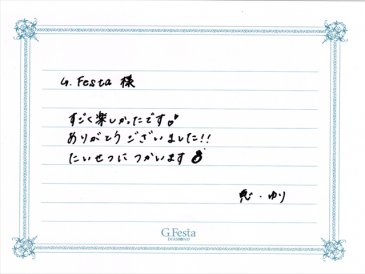 G.Festa 様
すごく楽しかったです♪
ありがとうございました!!
たいせつに つかいます
・ゆり
G.Festa
DIAMOND